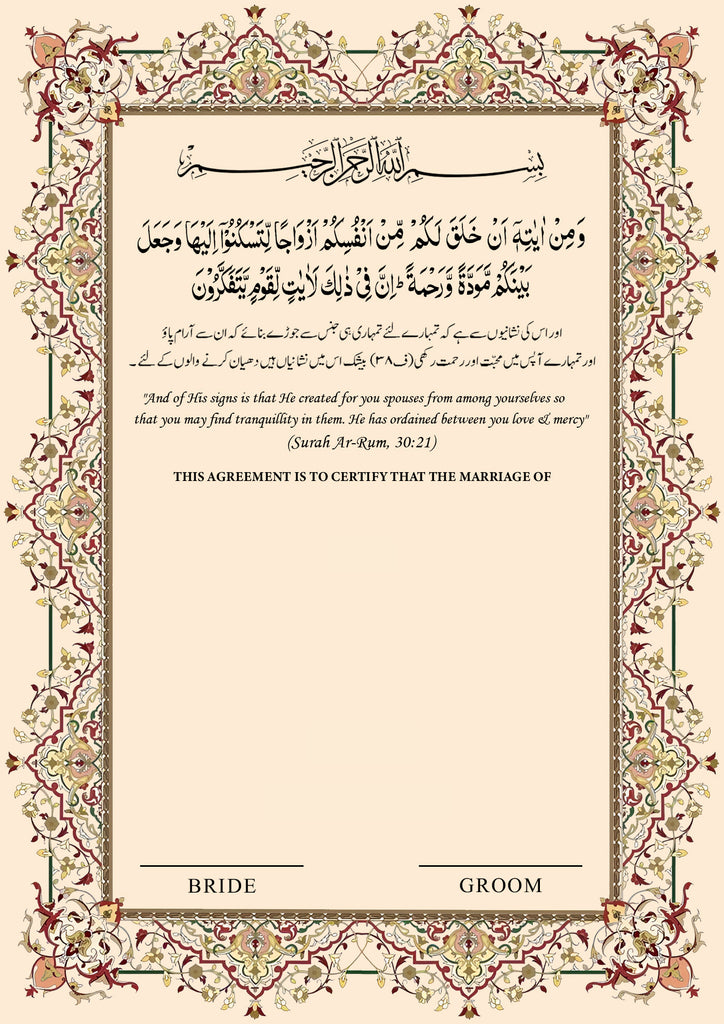 بسم الله الرحمن الرحيم
وَمِنْ اٰیٰتِهٖۤ اَنْ خَلَقَ لَكُمْ مِّنْ اَنْفُسِكُمْ اَزْوَاجًا لِّتَسْكُنُوْۤا اِلَیْهَا وَجَعَلَ
بَیْنَكُمْ مَّوَدَّةً وَّرَحْمَةً ؕ اِنَّ فِیْ ذٰلِكَ لَاٰیٰتٍ لِّقَوْمٍ یَّتَفَكَّرُوْنَ
اور اس کی نشانیوں سے ہے کہ تمہارے لئے تمہاری ہی جنس سے جوڑے بنائے کہ ان سے آرام پاؤ
اور تمہارے آپس میں محبّت اور رحمت رکھی (ف۳۸) بیشک اس میں نشانیاں ہیں دھیان کرنے والوں کے لئے ۔
"And of His signs is that He created for you spouses from among yourselves so
that you may find tranquillity in them. He has ordained between you love & mercy"
(Surah Ar-Rum, 30:21)
THIS AGREEMENT IS TO CERTIFY THAT THE MARRIAGE OF
BRIDE GROOM